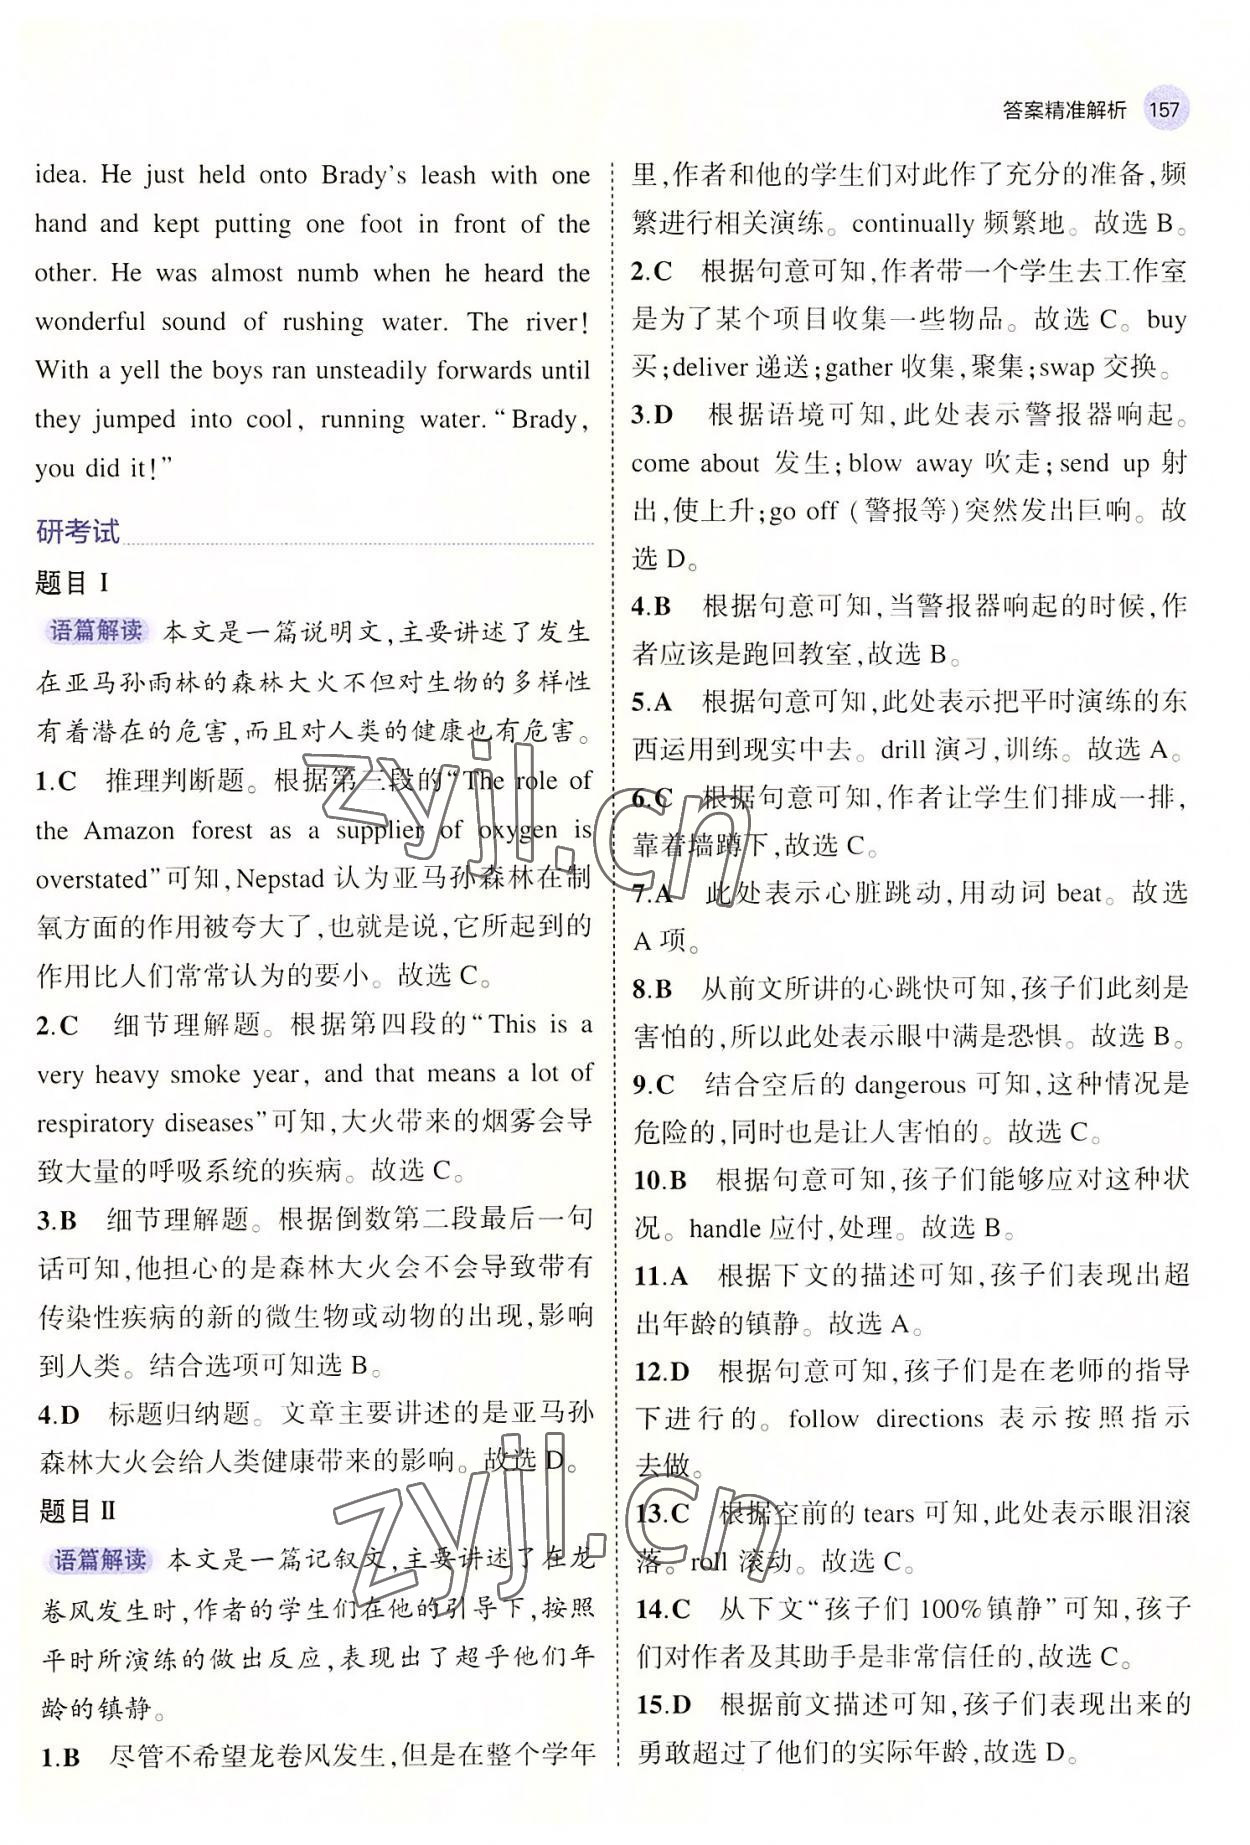 答案精准解析 157
idea. He just held onto Brady's leash with one
hand and kept putting one foot in front of the
other. He was almost numb when he heard the
wonderful sound of rushing water. The river!
With a yell the boys ran unsteadily forwards until
they jumped into cool, running water. “Brady,
you did it!”
研考试
题目 I
语篇解读 本文是一篇说明文,主要讲述了发生
在亚马孙雨林的森林大火不但对生物的多样性
有着潜在的危害,而且对人类的健康也有危害。
1.C 推理判断题。根据第三段的“The role of
the Amazon forest as a supplier of oxygen is
overstated”可知,Nepstad 认为亚马孙森林在制
氧方面的作用被夸大了,也就是说,它所起到的
作用比人们常常认为的要小。故选 C。
2.C 细节理解题。根据第四段的“This is a
very heavy smoke year, and that means a lot of
respiratory diseases”可知,大火带来的烟雾会导
致大量的呼吸系统的疾病。故选 C。
3.B 细节理解题。根据倒数第二段最后一句
话可知,他担心的是森林大火会不会导致带有
传染性疾病的新的微生物或动物的出现,影响
到人类。结合选项可知选 B。
4.D 标题归纳题。文章主要讲述的是亚马孙
森林大火会给人类健康带来的影响。故选 D。
题目 II
语篇解读 本文是一篇记叙文,主要讲述了在龙
卷风发生时,作者的学生们在他的引导下,按照
平时所演练的做出反应,表现出了超乎他们年
龄的镇静。
1.B 尽管不希望龙卷风发生,但是在整个学年
里,作者和他的学生们对此作了充分的准备,频
繁进行相关演练。continually 频繁地。故选 B。
2.C 根据句意可知,作者带一个学生去工作室
是为了某个项目收集一些物品。故选 C。buy
买;deliver 递送;gather 收集,聚集;swap 交换。
3.D 根据语境可知,此处表示警报器响起。
come about 发生;blow away 吹走;send up 射
出,使上升;go off (警报等)突然发出巨响。故
选 D。
4.B 根据句意可知,当警报器响起的时候,作
者应该是跑回教室,故选 B。
5.A 根据句意可知,此处表示把平时演练的东
西运用到现实中去。drill 演习,训练。故选 A。
6.C 根据句意可知,作者让学生们排成一排,
靠着墙蹲下,故选 C。
7.A 此处表示心脏跳动,用动词 beat。故选
A 项。
8.B 从前文所讲的心跳快可知,孩子们此刻是
害怕的,所以此处表示眼中满是恐惧。故选 B。
9.C 结合空后的 dangerous 可知,这种情况是
危险的,同时也是让人害怕的。故选 C。
10.B 根据句意可知,孩子们能够应对这种状
况。handle 应付,处理。故选 B。
11.A 根据下文的描述可知,孩子们表现出超
出年龄的镇静。故选 A。
12.D 根据句意可知,孩子们是在老师的指导
下进行的。follow directions 表示按照指示
去做。
13.C 根据空前的 tears 可知,此处表示眼泪滚
落。roll 滚动。故选 C。
14.C 从下文“孩子们 100%镇静”可知,孩子
们对作者及其助手是非常信任的,故选 C。
15.D 根据前文描述可知,孩子们表现出来的
勇敢超过了他们的实际年龄,故选 D。
zyjl.cn
zyjl.cn